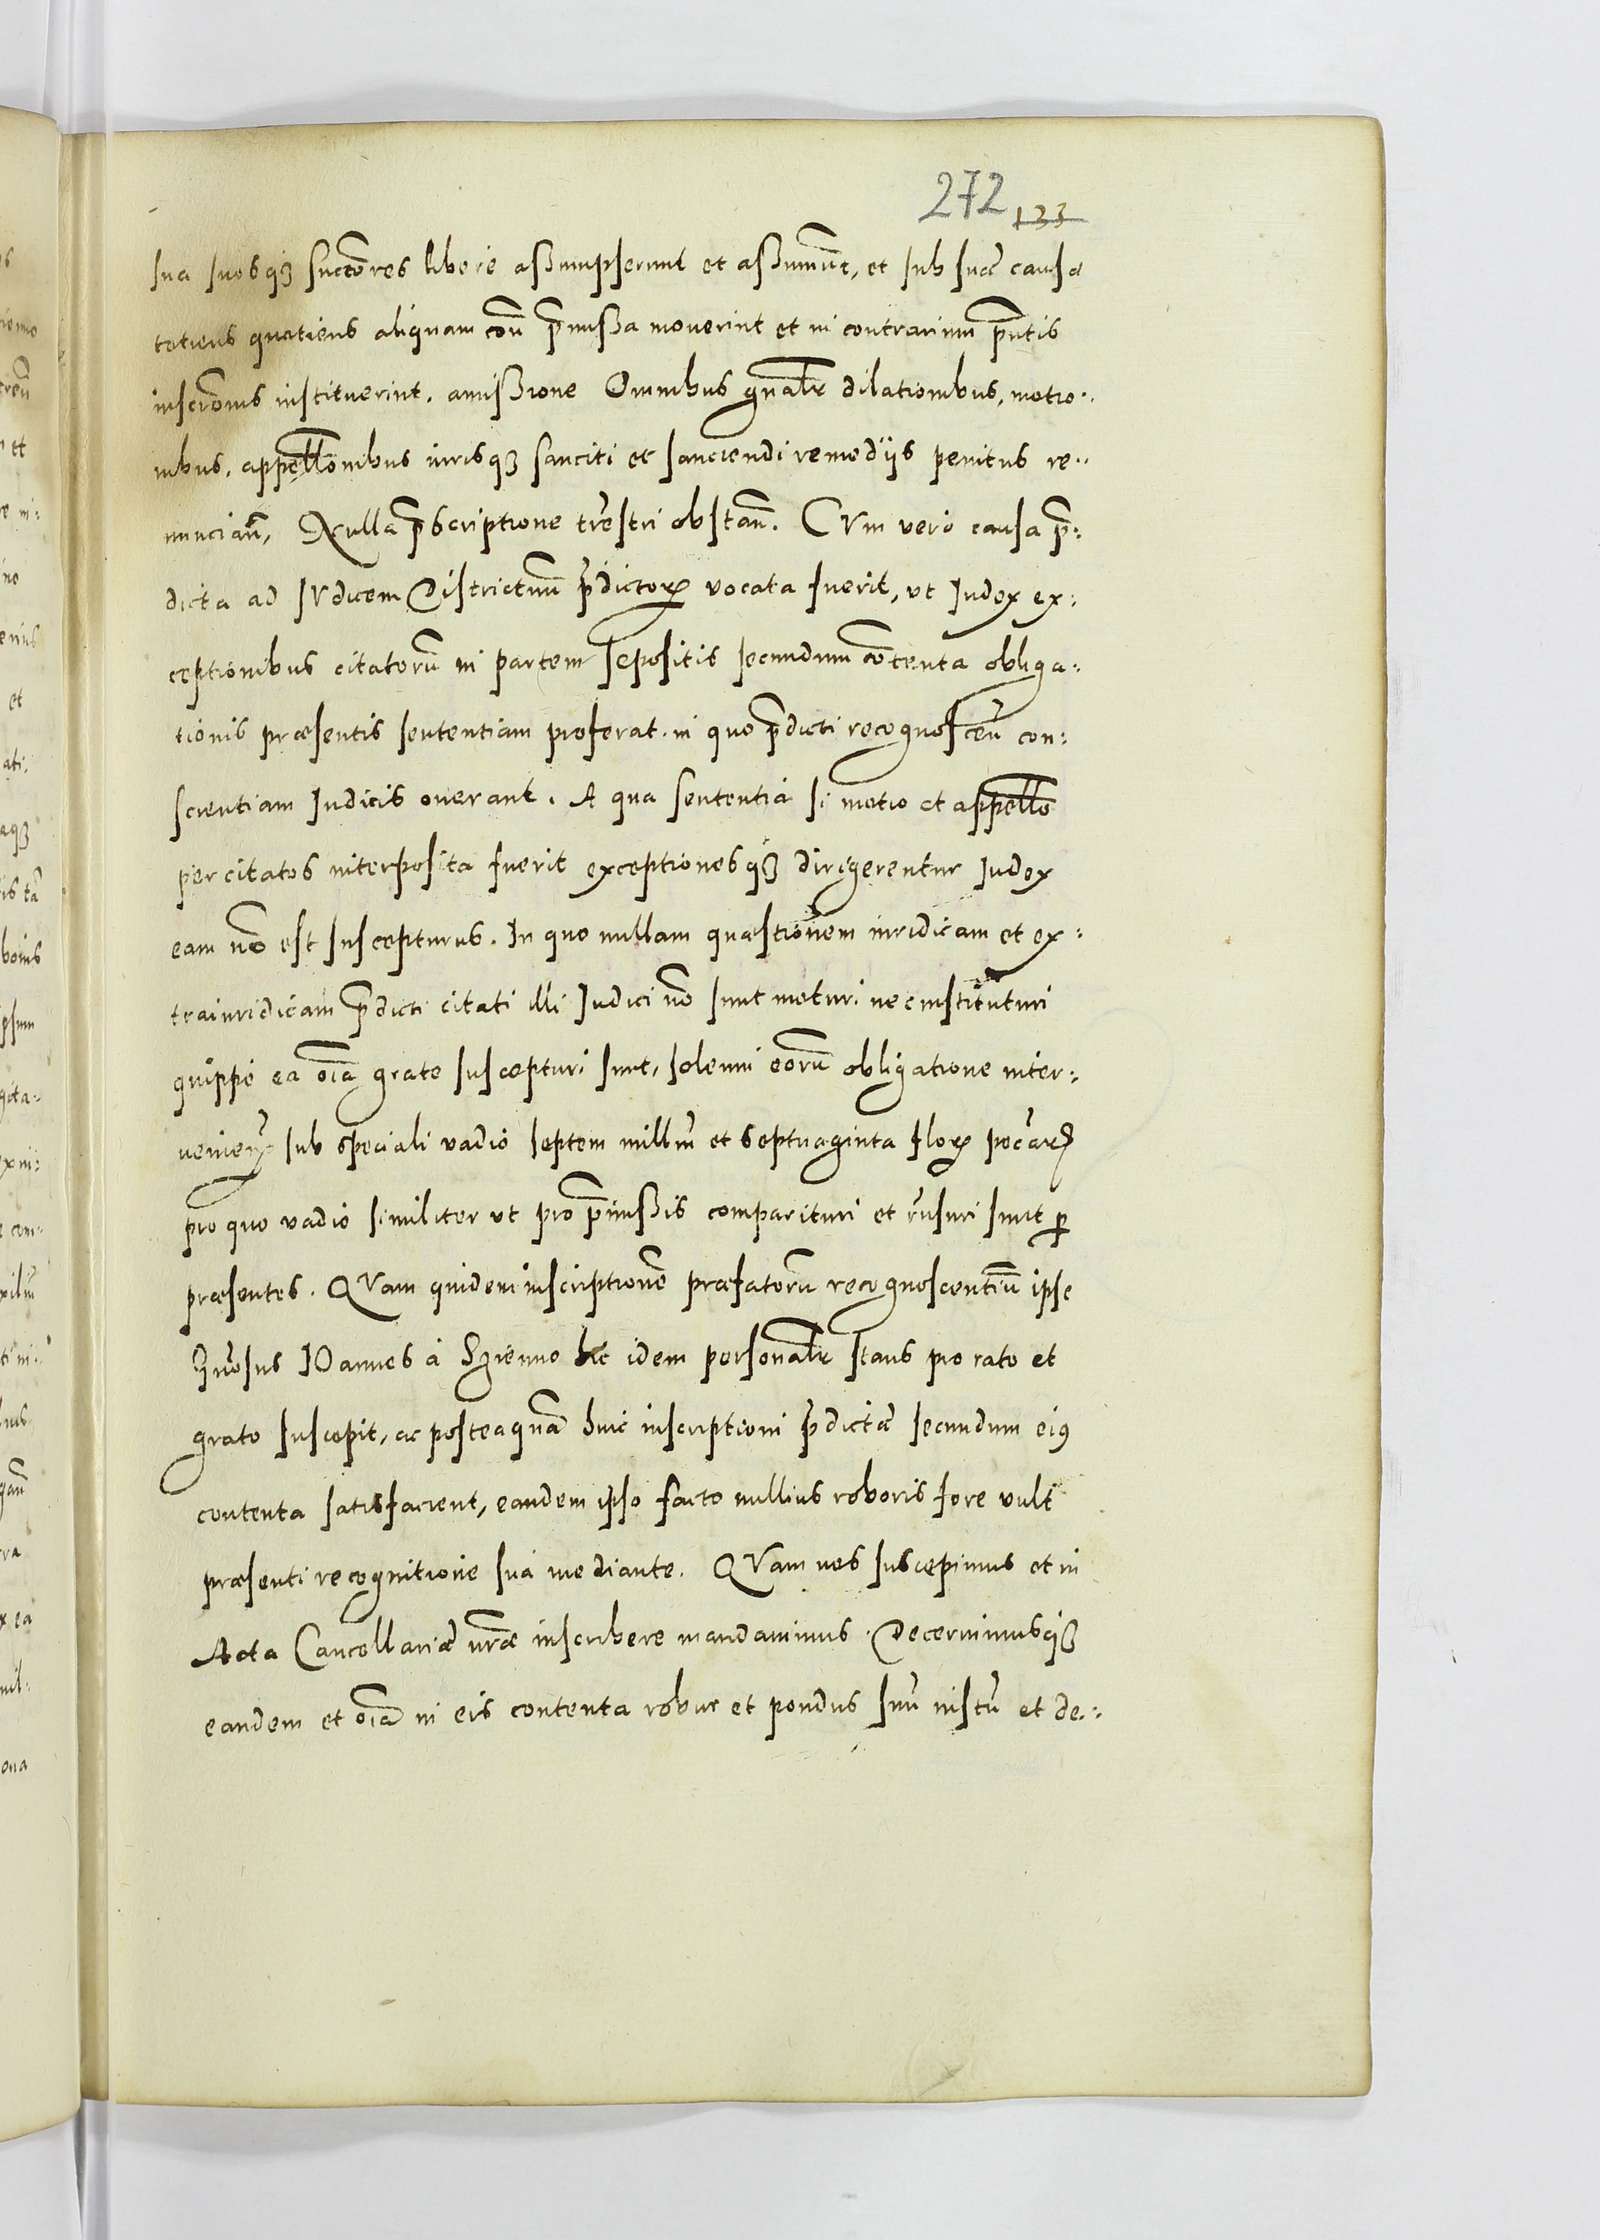 272 133
sua suosq₃ succōres libere aßumpserunt et aßumūt, et sub suæ causæ
totiens quotiens aliquam cōn p̄mißa moverint et in contrarium p̄ntis
inscrōnis instituerint. amißione Omnibus gn̄alr dilationibus, motio:
nibus, appellōnibus iurisq₃ sanciti et sanciendi remedijs penitus re:
nuncian̄, Nulla p̄scriptione tr̄estri obstan̄. CVm vero causa p̄:
dicta ad IVdicem Districtuum p̄dictoꝝ vocata fuerit, vt Iudex ex:
ceptionibus citatorū in partem sepositis secundum cōtenta obliga:
tionis præsentis sententiam proferat. in quo p̄dicti recognoscen̄ con:
scientiam Iudicis onerant. A qua sententia si motio et appellō
per citatos interposita fuerit exceptionesq₃ dirigerentur Iudex
eam nō est suscepturus. In quo nullam quæstionem iuridicam et ex:
traiuridicam p̄dicti citati illi Iudici nō sunt moturi nec instituturi
quippe ea oīa grate suscepturi sunt, solenni eorū obligatione inter:
venien̄ sub speciali vadio septem milliū et septuaginta Floꝝ pec̄arꝝ
pro quo vadio similiter vt pro p̄mißis comparituri et rn̄suri sunt ꝑ
præsentes. QVam quidem inscriptionē præfatorū recognoscentiū ipse
Gn̄osus IOannes à Szienno hic idem personalr stans pro rato et
grato suscepit, ac posteaquā huic inscriptioni p̄dictæ secundum eiꝰ
contenta satisfacient, eandem ipso facto nullius roboris fore vult
præsenti recognitione sua mediante. QVam nos suscepimus et in
Acta Cancellariæ nr̄æ inscribere mandavimus. Decernimusq₃
eandem et oīa in eis contenta robur et pondus suū iustū et de: